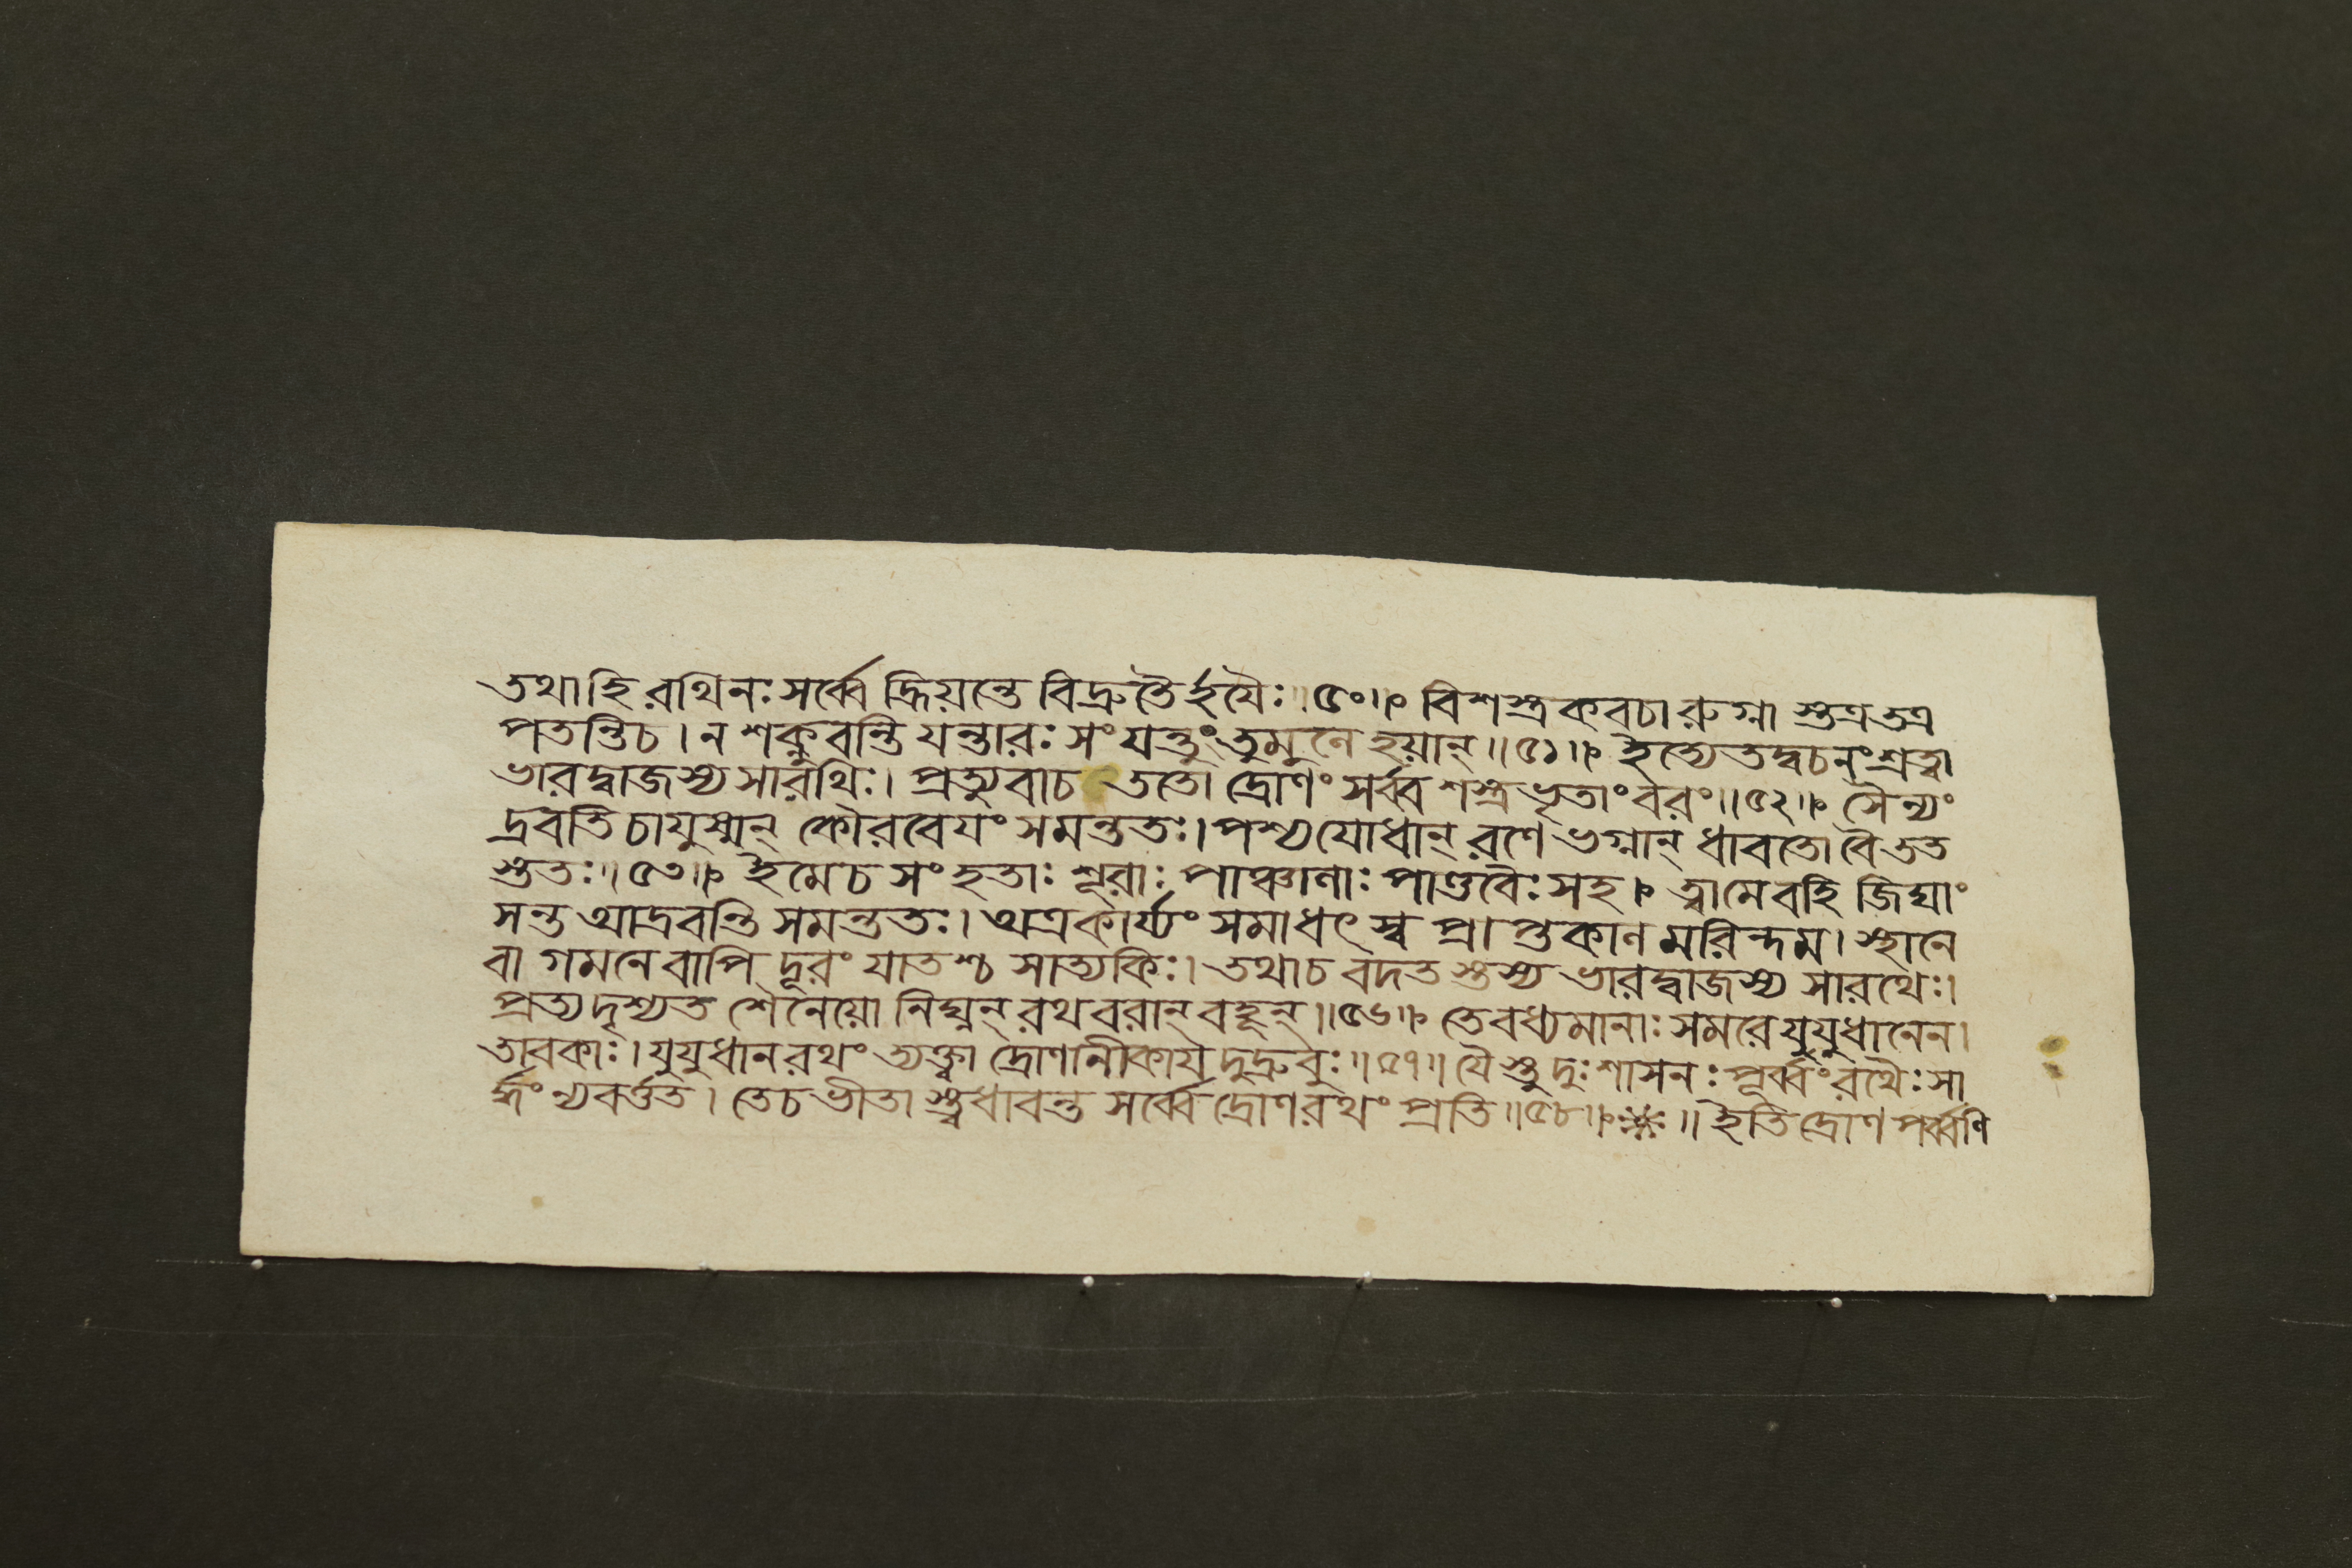 তথাহি রথিনঃ সর্ব্বে হ্রিয়ন্তে বিদ্রুতৈর্হযৈঃ॥৫০॥ বিশস্ত্রকবচা রুগ্না স্তত্রতত্র
পতন্তিচ। ন শক্নুবন্তি যন্তারঃ সংযন্তুং তুমুলে হয়ান্॥৫১॥ ইত্যেতদ্বচনং শ্রত্বা
ভারদ্বাজস্য সারথিঃ। প্রত্যুবাচ ততো দ্রোণং সর্ব্বশস্ত্রভৃতাং বরং॥৫২॥ সৈন্যং
দ্রবতি চায়ুষ্মন্ কৌরবেযং সমন্ততঃ। পশ্য যোধান্ রণে ভগ্নান্ ধাবতো বৈ তত
স্ততঃ॥৫৩॥ ইমেচ সংহতাঃ শূরাঃ পাঞ্চালাঃ পাণ্ডবৈঃ সহ। ত্বামেবহি জিঘাং
সন্ত আদ্রবন্তি সমন্ততঃ। অত্রকার্য্যং সমাধৎস্ব প্রাপ্তকাল মরিন্দম। স্থানে
বা গমনে বাপি দূরং যাতশ্চ সাত্যকিঃ। তথাচ বদত স্তস্য ভারদ্বাজস্য সারথেঃ।
প্রত্যদৃশ্যত শৈনেয়ো নিঘ্নন্ রথবরান্ বহূন্॥৫৬॥ তে বধ্যমানাঃ সমরে যুযুধানেন।
তাবকাঃ। যুযুধান রথং ত্যক্ত্বা দ্রোণানীকায দুদ্রুবুঃ॥৫৭॥ যৈস্তু দুঃশাসনঃ পূর্ব্বং রথৈঃ সা
র্দ্ধং ন্যবর্ত্তত। তেচ ভীতা স্ত্বধাবন্ত সর্ব্বে দ্রোণরথং প্রতি॥৫৮॥ ॥ ইতি দ্রোণপর্ব্বণি